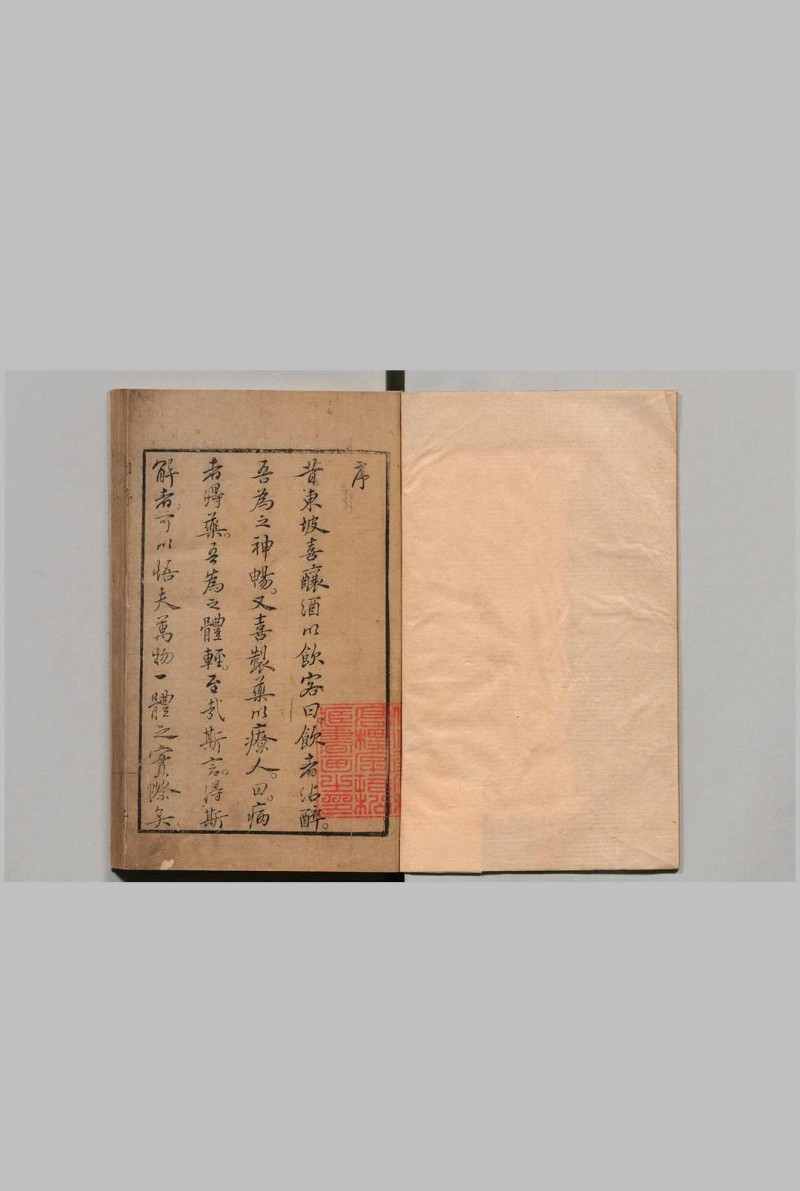 序
昔東坡喜釀酒以飲客曰飲者沾醉。
吾為之神暢。又喜製藥以療人。曰。病
者得藥。吾為之體輕。至哉斯言。得斯
解者。可以悟夫萬物一體之實際矣。